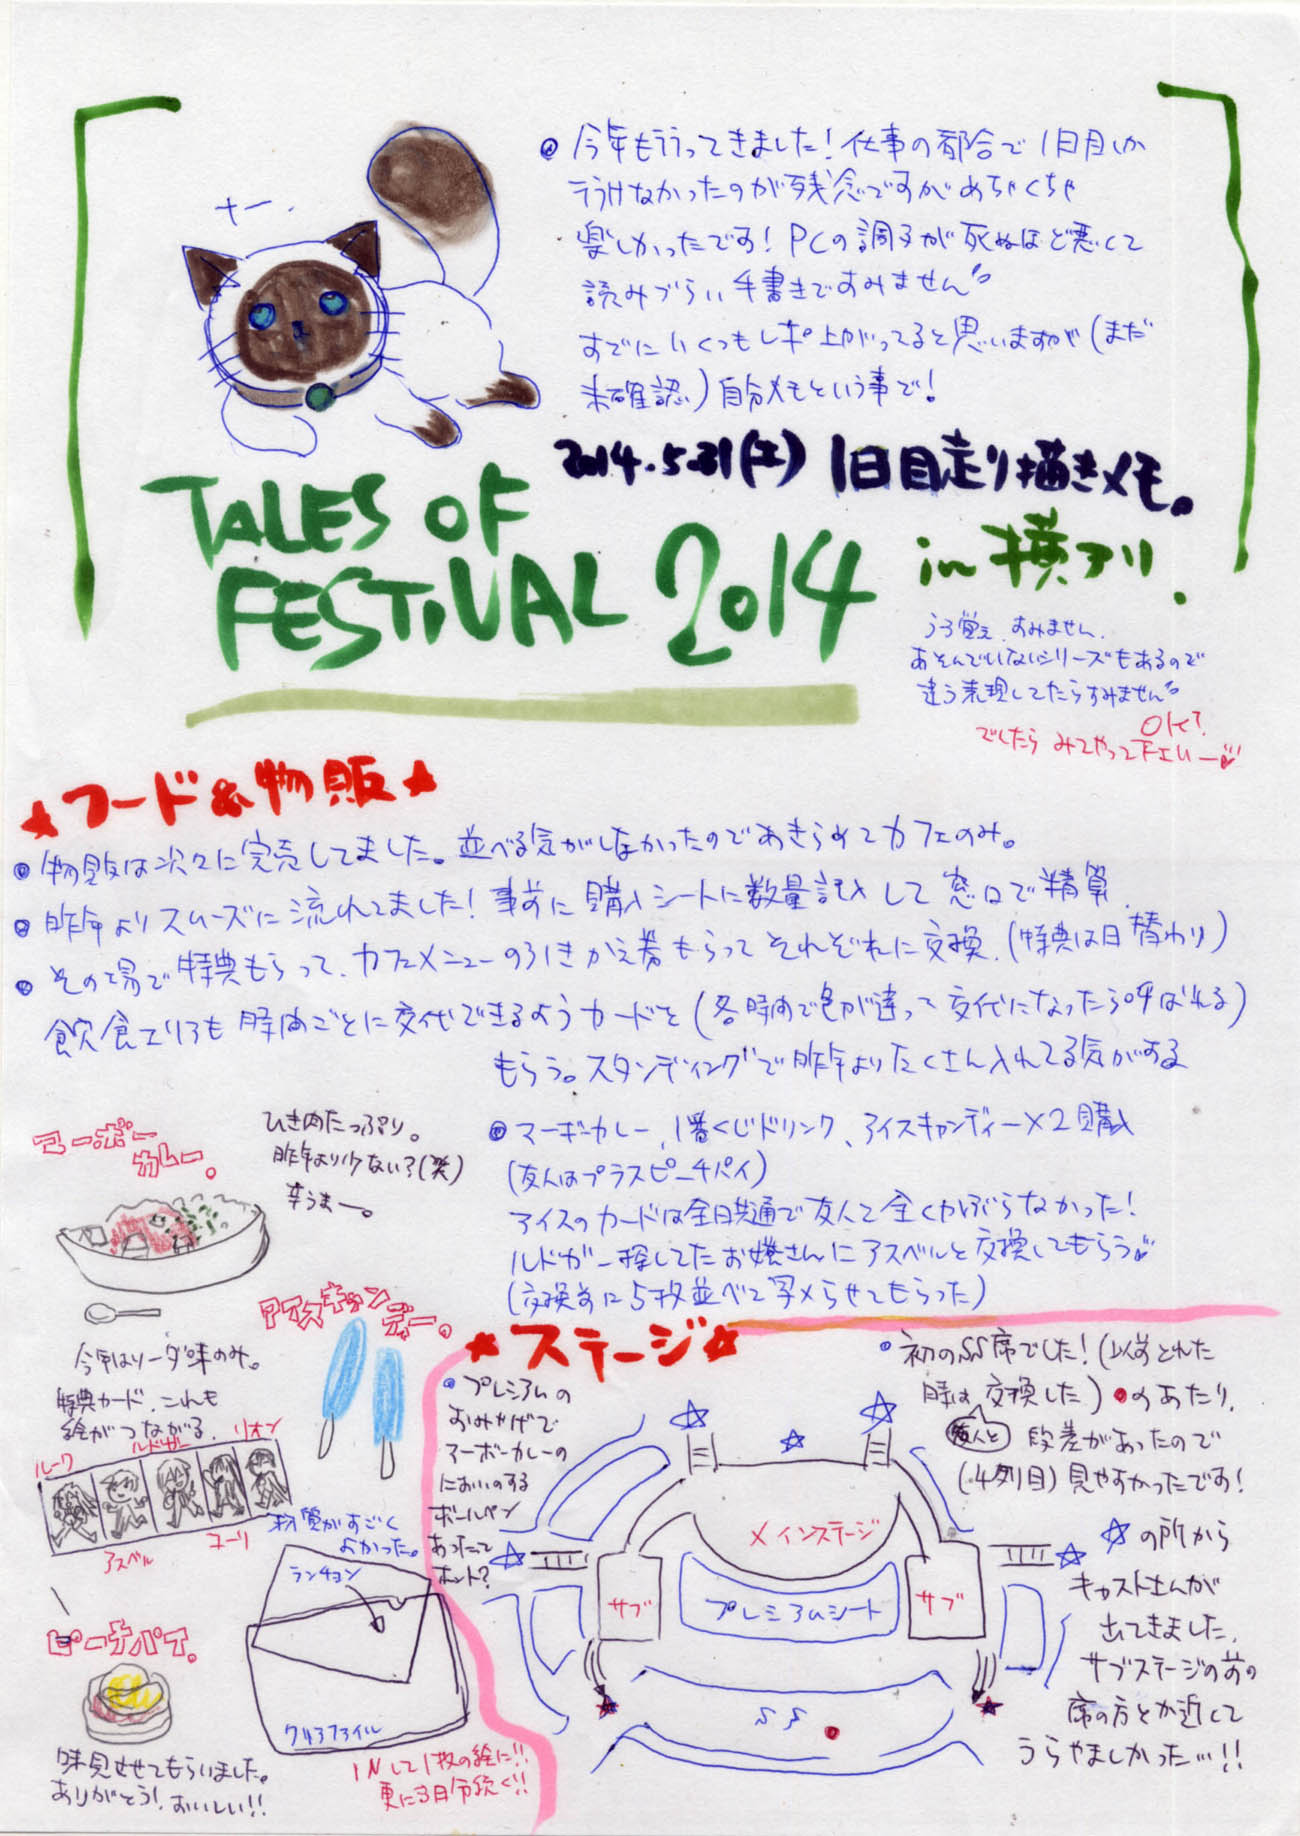 今年も行ってきました！仕事の都合で1日目しか
行けなかったのが残念ですがめちゃくちゃ
楽しかったです！PCの調子が死ぬほど悪くて
読みづらい手書きですみません
すでにいくつもレポ上がってると思いますが(まだ
未確認)自分メモという事で！
ナー。
2014.5.31(土) 1日目走り描きメモ。
TALES OF
FESTIVAL 2014
in 横アリ.
うろ覚え、すみません。
あそんでいないシリーズもあるので
違う表現してたらすみません
OK?
でしたら みてやって下さいー
★フード&物販★
物販は次々に完売してました。並べる気がしなかったのであきらめてカフェのみ。
昨年よりスムーズに流れてました！事前に購入シートに数量記入して窓口で精算。
その場で特典もらって、カフェメニューの引きかえ券もらってそれぞれに交換。(特典は日替わり)
飲食エリアも時間ごとに交代できるようカードを(各時間で色が違って交代になったら呼ばれる)
もらう。スタンディングで昨年よりたくさん入れてる気がする
マーボーカレー。
ひき肉たっぷり。
昨年より少ない？(笑)
辛うまー。
マーボーカレー、1番くじドリンク、アイスキャンディー×2購入
(友人はプラスピーチパイ)
アイスのカードは全日共通で友人と全くかぶらなかった！
ルドガー探してたお嬢さんにアスベルと交換してもらう
(交換前に5枚並べて写メらせてもらった)
アイスキャンディー。
今年はソーダ味のみ。
特典カード、これも
絵がつながる。
ルーク
ルドガー
リオン
アスベル
ユーリ
材質がすごく
よかった。
ランチョン
クリアファイル
INして1枚の絵に！！
更に3日分続く！！
ピーチパイ。
味見させてもらいました。
ありがとう！おいしい！！
★ステージ★
プレミアムの
おみやげで
マーボーカレーの
においのする
ボールペン
あったって
ホント？
初のSS席でした！(以前とれた
時は、交換した)●のあたり。
友人と
段差があったので
(4列目)見やすかったです！
メインステージ
サブ
プレミアムシート
サブ
SS
☆の所から
キャストさんが
出てきました。
サブステージの前の
席の方とか近くて
うらやましかった…！！